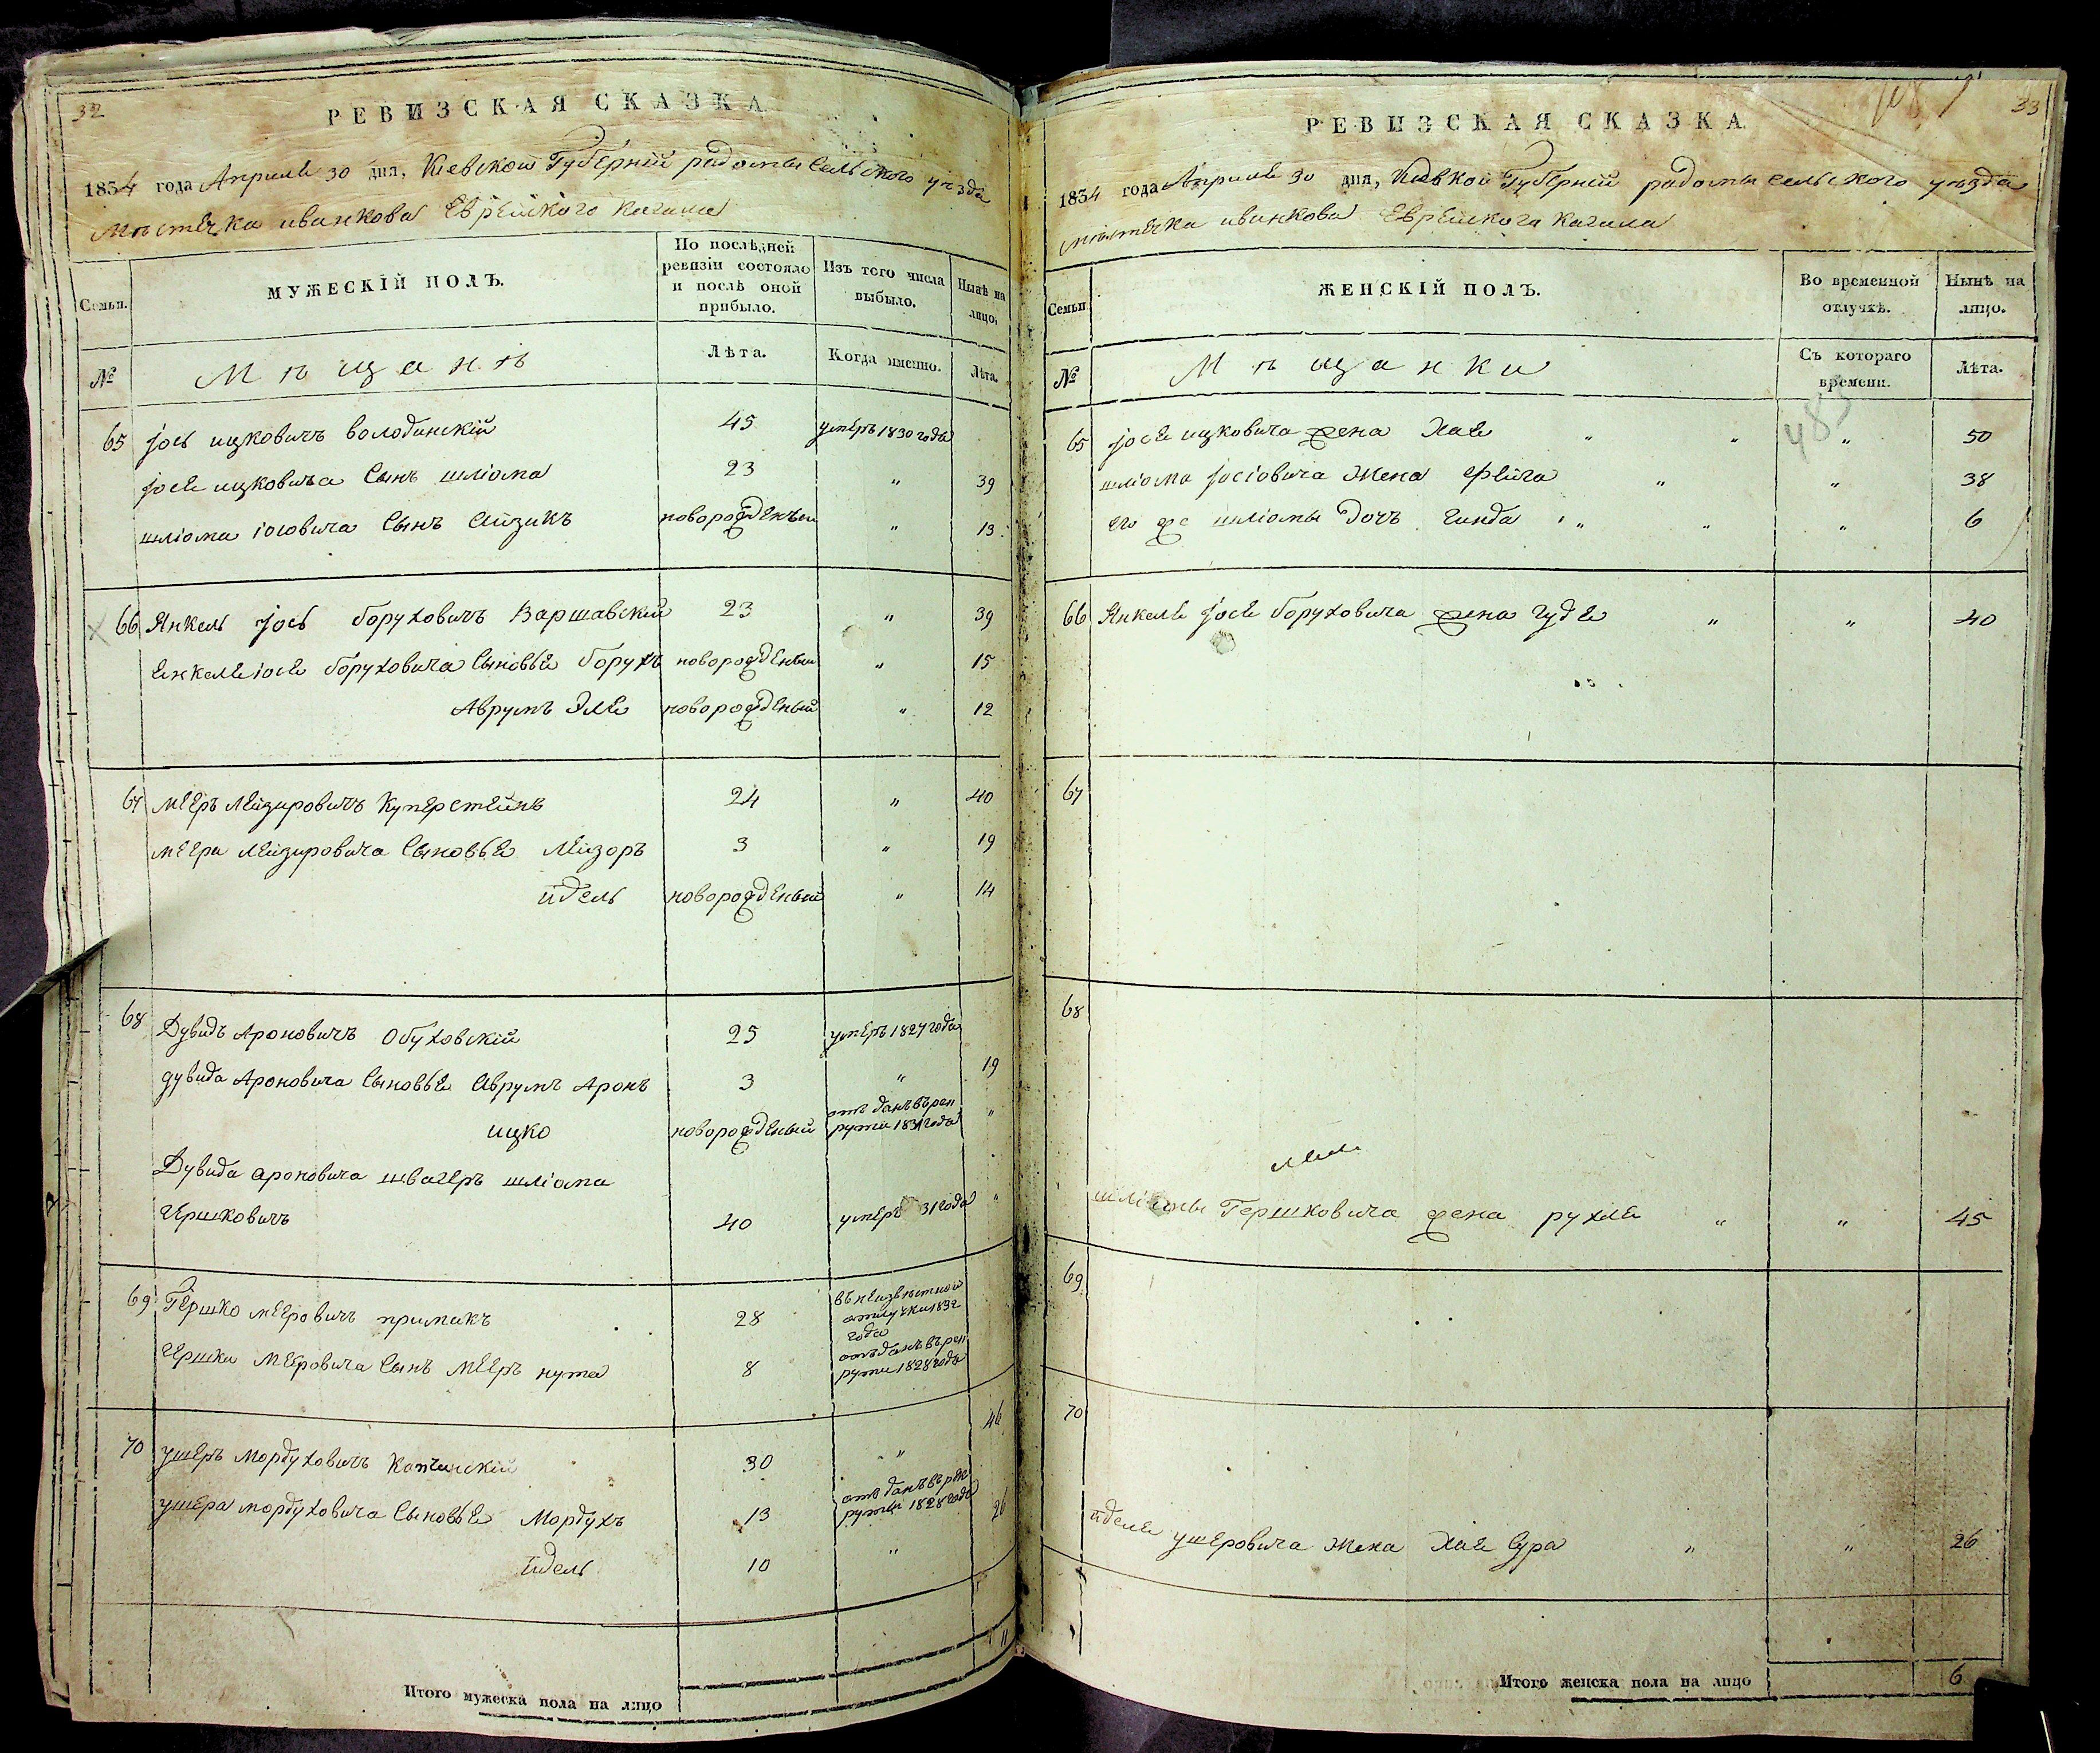 32
РЕВИЗСКАЯ СКАЗКА
1834 года Апреля 30 дня, Кіевской Губерніи радомысельского уезда
Мѣстечка иванкова Еврейского Кагала
Семьи.
МУЖЕСКІЙ ПОЛЪ.
По послѣдней ревизіи состояло и послѣ оной прибыло.
Изъ того числа выбыло.
Нынѣ на лицо,
№
Мѣщанѣ
Лѣта.
Когда именно.
Лѣта.
65 Іось ицковичъ володинскій 45 умеръ 1830 года
Іосе ицковича Сынъ шліома 23 " 39
шліома іосовича Сынъ Айзикъ новорожденъи " 13
66 Янкель Іось боруховичъ Варшавскій 23 " 39
Енкеле іосе боруховича Сыновье борухъ новорожденый " 15
Аврумъ Эле новорожденый " 12
67 Мееръ Лейзировичъ Куперстейнъ 24 " 40
меера Лейзировича Сыновье Лейзоръ 3 " 19
идель новорожденый " 14
68 Дувидъ Ароновичъ Обуховскій 25 умеръ 1827 года
дувида Ароновича Сыновье Аврумъ Аронъ 3 " 19
ицко новорожденый отъ данъ въ рек
рути 1831 года "
Дувида ароновича швагеръ шліома
Гершковичъ 40 умеръ 31 года "
69 Гершко меЕровичъ примакъ 28 въ неизвѣстной
отлучки 1832
года
Гершки МеЕровича Сынъ МеЕръ нута 8 отъ данъ въ рек
рути 1828 года
70 ушеръ Мордуховичъ Капчинскій 30 " 46
ушера мордуховича Сыновье Мордухъ 13 отъ данъ въ рек
рути 1828 года
идель 10 " 26
Итого мужеска пола на лицо 11
33
РЕВИЗСКАЯ СКАЗКА
1834 года Апреля 30 дня, Кіевкой Губерніи радомысельского уезда
мѣстечка иванкова Еврейскога Кагала
Семьи
ЖЕНСКІЙ ПОЛЪ.
Во временной отлучкѣ.
Нынѣ на лицо.
№
Мѣщанки
Съ котораго времени.
Лѣта.
485
65 Іосе ицковича жена Хае " " " 50
шліома Іосіовича Жена Фейга " " 38
его же шліомы Дочъ Гинда " " " 6
66 Янкеле Іосе боруховича жена гуде " " 40
67
68
шліомы Гершковича жена рухле " " 45
69
70
иделе ушеровича Жена Хае Сура " " 26
Итого женска пола на лицо 6